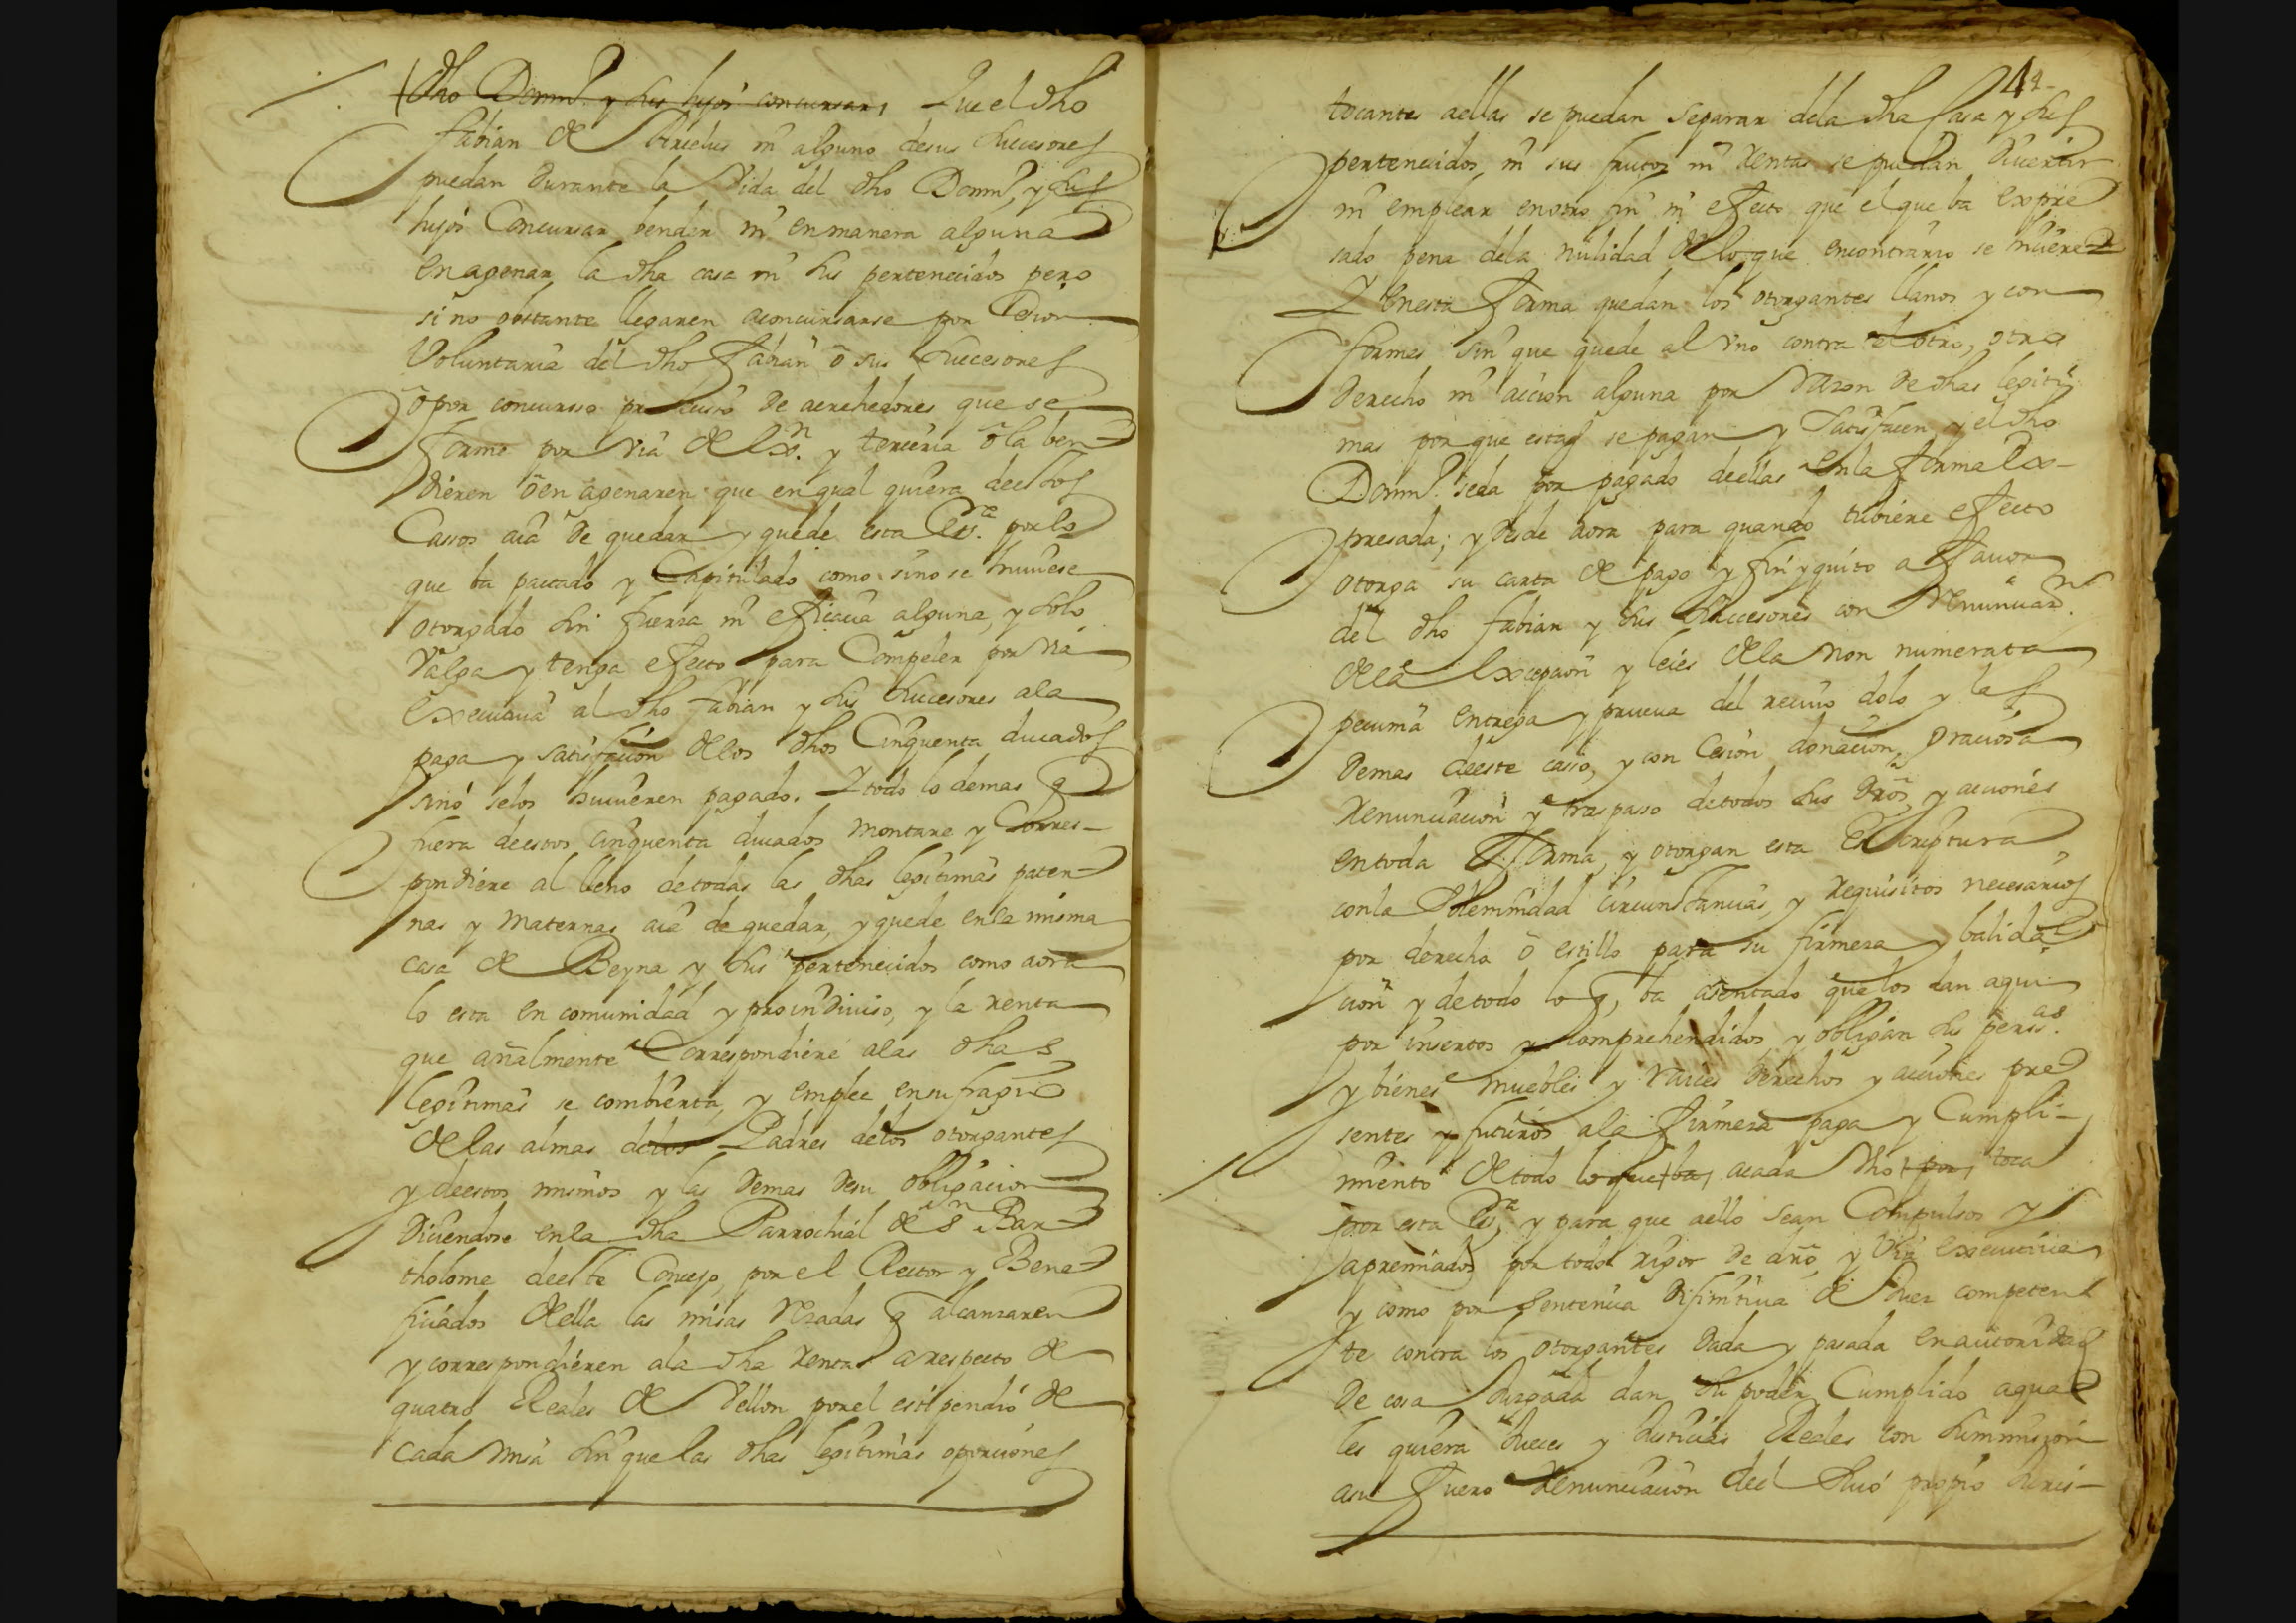 dho Domin.º y sus hijos concursar, Que el dho
fabian de ni alguno desus sucesores
puedan durante la Vida del dho Domin.º, y sus
hijos Concursar bender ni enmanera alguna
enagenar la dha casa ni sus pertenecidos pero
sino obstante llegaren aconcursarse por Cesion
Voluntaria del dho fabian ô sus sucesores
ô por concursso de acrehedores que se
forme por via de Ex.on y terceria ô la ben
dieren ô en agenaren que en qual quiera de estos
Cassos aia de quedar y quede esta Es.ra por lo
que ba pactado y Capitulado como sino se huuiese
otorgado sin fuerza ni eficacia alguna, y solo
Valga y tenga efecto para Compeler por via
executiua al dho fabian y sus sucesores ala
paga y satisfacion delos dhos Cinquenta ducados
sino selos huuieren pagado. Y todo lo demas q
fuera deestos cinquenta ducados montare y Corres-
pondiere al lleno detodas las dhas legitimas pater
nas y maternas aia de quedar, y quede enla misma
casa de Beyna y sus pertenecidos como aora
lo esta en comunidad y proindiuiso, y la renta
que añalmente Correspondiere alas dhas
legitimas se combierta, y emplee ensufragio
de las almas delos Padres delos otorgantes
y deestos mismos y las demas desu obligacion
diciendose enla dha Parrochial de s.n Bar
tholome deeste Concejo, por el Rector y Bene
ficiados della las misas rezadas q alcanzaren
y correspondieren ala dha renta arespecto de
quatro Reales de Vellon porel estipendio de
cada misa sin que las dhas legitimas oporciones
44
tocantes aellas se puedan separar dela dha Casa y sus
pertenecidos, ni sus frutos ni rentas se puedan diuertir
ni emplear enotro fin ni efecto que el que ba expre
sado pena dela nulidad de lo que encontrario se hiciere
Y enesta forma quedan los otorgantes llanos y con
formes sin que quede al vno contra el otro, otro
derecho ni accion alguna por razon de dhas legiti
mas por que estas se pagan y satisfacen, y el dho
Domin.º seda por pagado deellas enla forma Ex-
presada; y desde aora para quando tubiere efecto
otorga su carta de pago y fin yquito a fauor
del dho fabian y sus succesores con renunciaz.on
dela Excepcion y leies dela non numerata
pecunia entrega y prueua del reciuo dolo y las
demas deeste casso, y con Cesion donacion graciosa
renunciacion y traspasso detodos sus dros, y acciones
entoda forma, y otorgan esta Escriptura
conla solemnidad circunstancias, y requisitos necesarios
por derecho ô estillo para su firmeza y balida
cion y detodo lo q ba asentado que los dan aqui
por insertos y Comprehendidos, y obligan sus perss.as
y bienes muebles y raices derechos y acciones pre
sentes y futuros ala firmeza paga y Cumpli-
miento de todo lo que ba acada vno por toca
por esta Es.ra y para que aello sean Compulsos y
apremiados por todo rigor de dro, y via executiua
y como por sentencia difinitiua de Juez competen
te contra los otorgantes dada y pasada en autoridad
de cosa Juzgada dan su poder Cumplido aqua
les quiera Jueces y Justicias Reales con summision
asu fuero renunciacion del suio propio Juris-